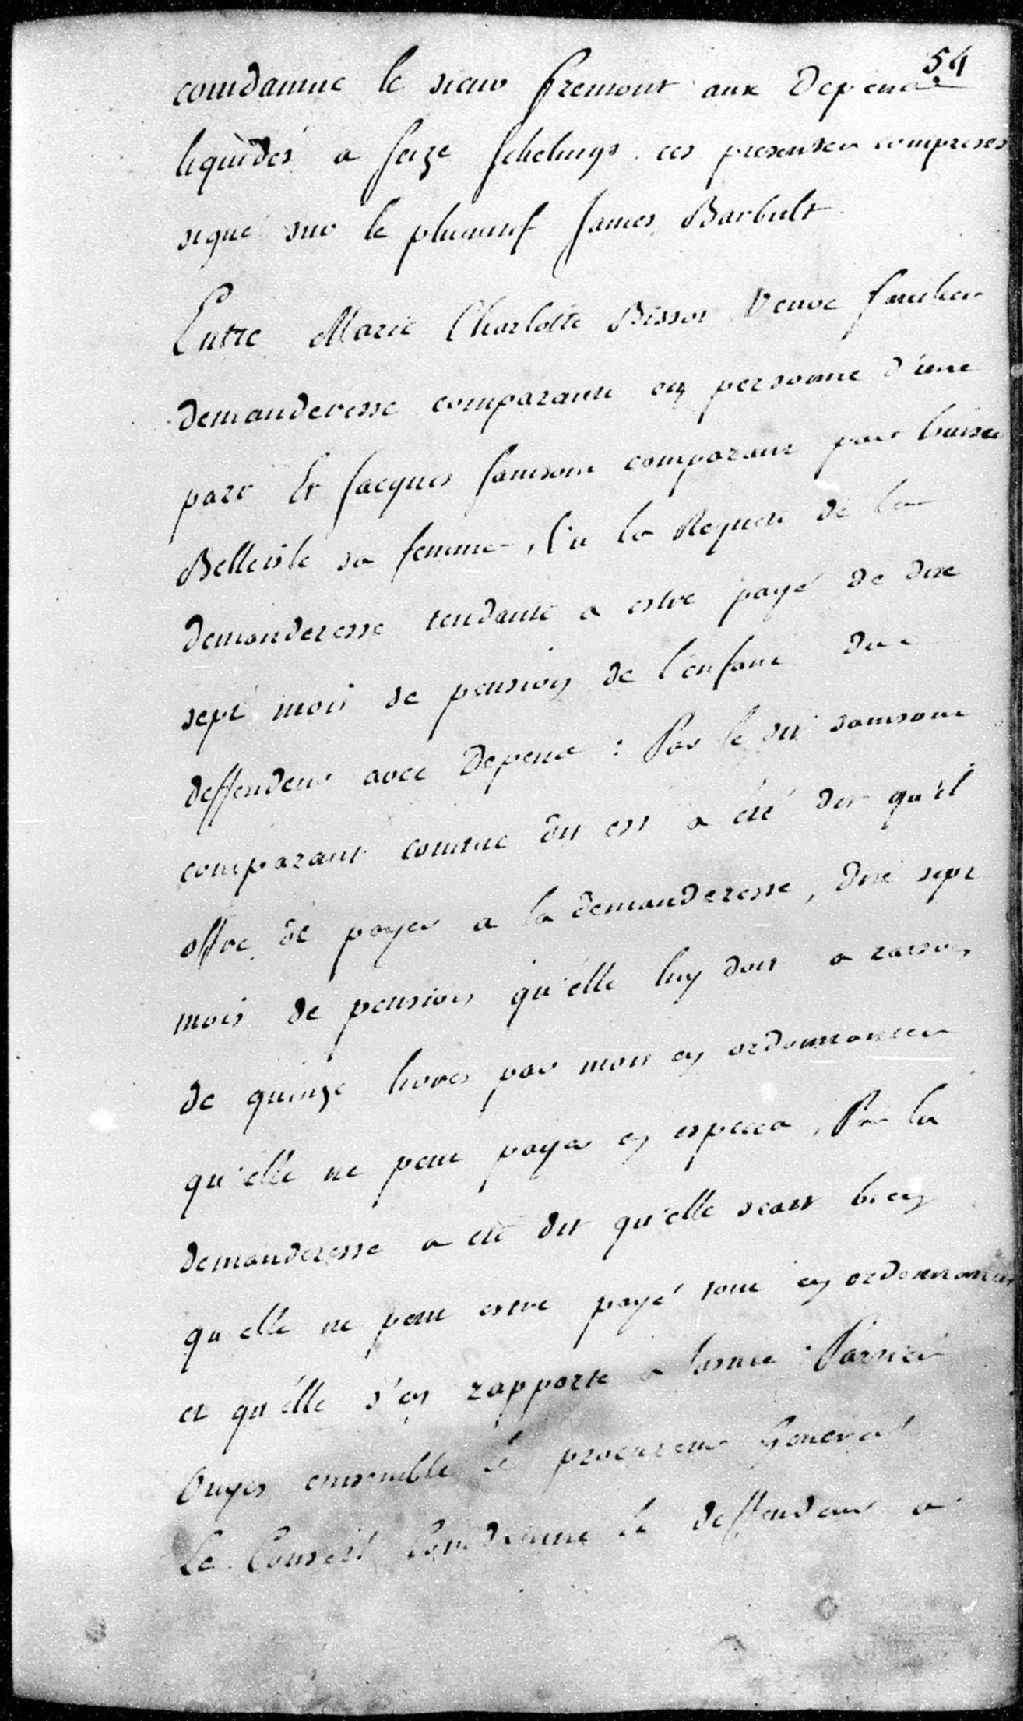 54
comdamne le sieur fremont aux Depens
liquidés a seize schelings ces presentes comprises
signé sur le plumitif James Barbult
Entre Marie Charlotte Bissot Veuve
demanderesse comparante en personne d'une
part Et Jacques samson comparant par louise
Belleisle sa femme, Vu la Requete de la
demanderesse tendante a estre payé de dix
sept mois de pension de l'enfant du
deffendeur avec Depens : Par le dit samson
comparant comme dit est a été dit qu'il
offre de payer a la demanderesse, dix sept
mois de pension qu'elle luy doit a raison
de quinze livres par mois en ordonnances
qu'elle ne peut payer en especes, Par la
demanderesse a été dit qu'elle scait bien
qu'elle ne peut estre payé tout en ordonnances
et qu'elle s'en rapporte a Parties
Ouyes ensemble le procureur General
Le Conseil Comdamne le deffendeur a